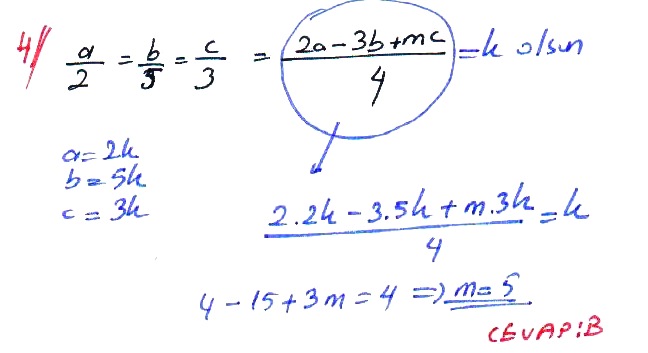 4/ a/2 = b/5 = c/3 = (2a-3b+mc)/4 = k olsun
a=2k
b=5k
c=3k
(2.2k-3.5k+m.3k)/4 = k
4-15+3m=4 => m=5
CEVAP:B